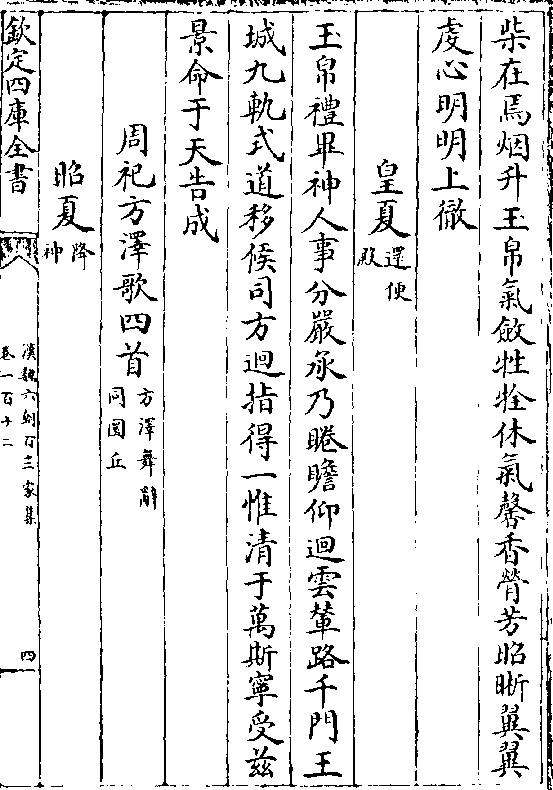 柴在焉烟升玉帛氣斂牲牷休氣馨香膋芳昭晰翼翼
虔心明明上徹
皇夏還便殿
玉帛禮畢神人事分嚴承乃睠瞻仰迴雲輦路千門王
城九軌式道移候司方迴指得一惟清于萬斯寧受兹
景命于天告成
周祀方澤歌四首方澤舞辭同圜丘
昭夏降神
欽定四庫全書
漢魏六朝百三家集
卷一百十二
四